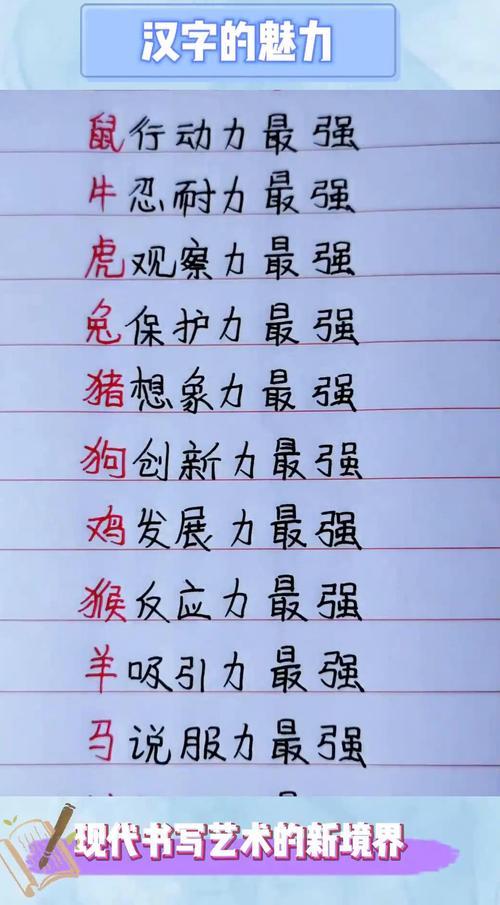 汉字的魅力
鼠行动力最强
牛忍耐力最强
虎观察力最强
兔保护力最强
猪想象力最强
狗创新力最强
鸡发展力最强
猴反应力最强
羊吸引力最强
马说服力最强
现代书写艺术的新境界